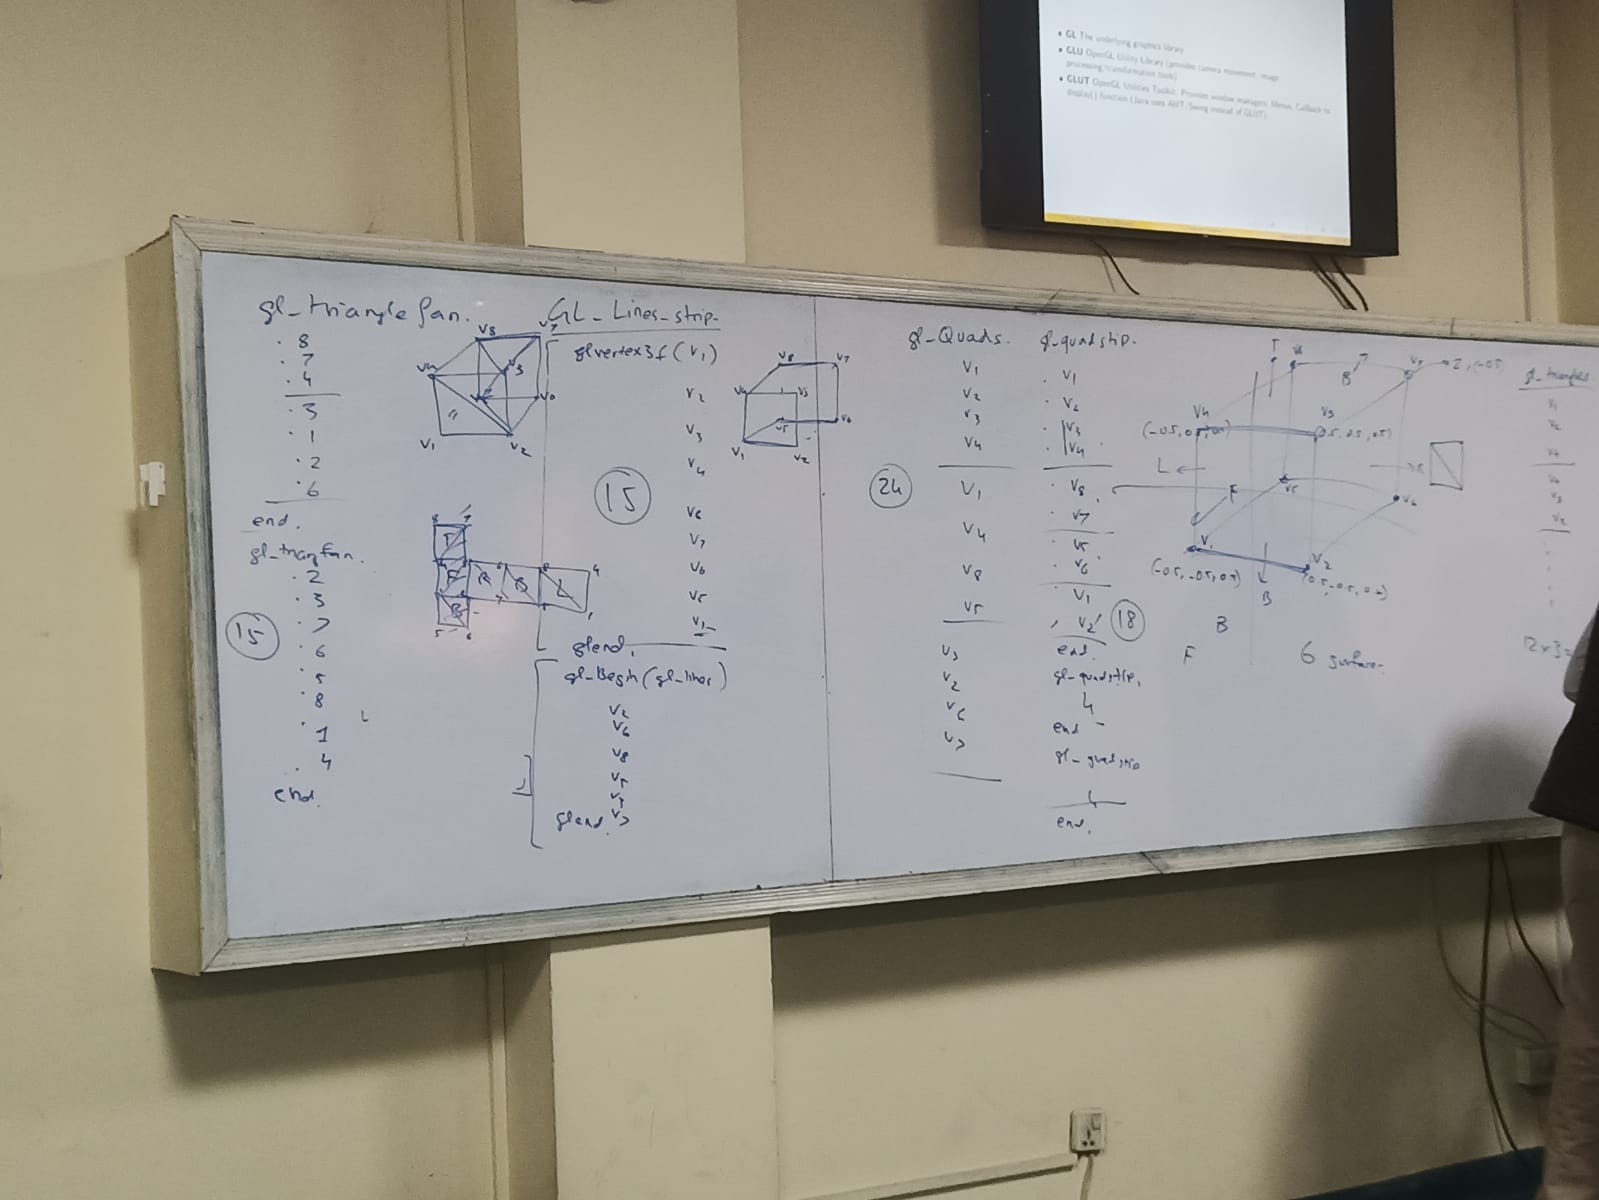 • GL The underlying graphics library
• GLU OpenGL Utility Library (provides camera movement, image
processing/transformation tools)
• GLUT OpenGL Utilities Toolkit: Provides window managers, Menus, Callback to
display() function (Java uses AWT/Swing instead of GLUT)
gl_triangle fan.
. 8
. 7
. 4
. 3
. 1
. 2
. 6
end.
. 2
. 3
. 7
. 6
. 5
. 8
. 1
. 4
end.
15
V8
V7
V4
V3
V1
V2
GL_Lines_strip
glvertex3f(V1)
V2
V3
V4
V8
V7
V6
V5
V1
glend.
15
gl_Begin(gl_lines)
V2
V6
V8
V5
glend.
V8
V7
V4
V3
V5
V6
V1
V2
gl_Quads.
V1
V2
V3
V4
V1
V4
V8
V5
V3
V2
V6
V7
24
gl_quadstip.
. V1
. V2
. V3
. V4
. V8
. V7
. V5
. V6
. V1
. V2
end.
gl_quadstip.
4
end
gl_quadstip
4
end.
18
T
B
V4
V3
(0.5, 0.5, 0.5)
L
F
V5
V6
V1
(-0.5, -0.5, 0.5)
V2
B
B
F
6 surface
gl_triangles
V1
V2
V4
V4
V3
V2
12×3=